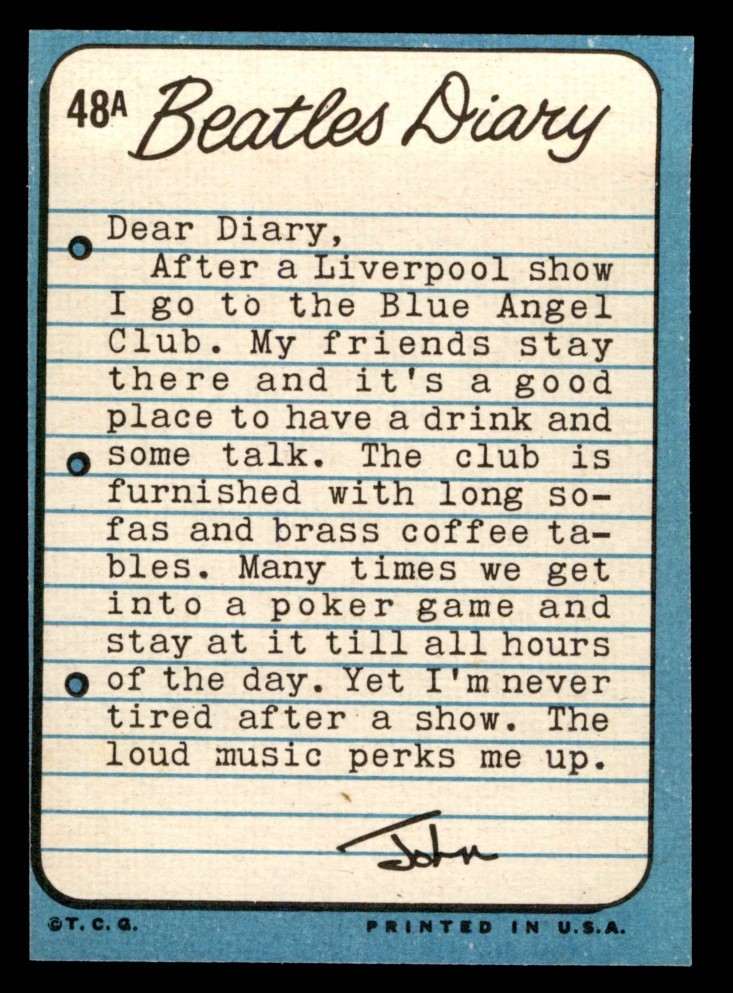 48A Beatles Diary
Dear Diary,
After a Liverpool show
I go to the Blue Angel
Club. My friends stay
there and it's a good
place to have a drink and
some talk. The club is
furnished with long so-
fas and brass coffee ta-
bles. Many times we get
into a poker game and
stay at it till all hours
of the day. Yet I'm never
tired after a show. The
loud music perks me up.
John
©T.C.G. PRINTED IN U.S.A.